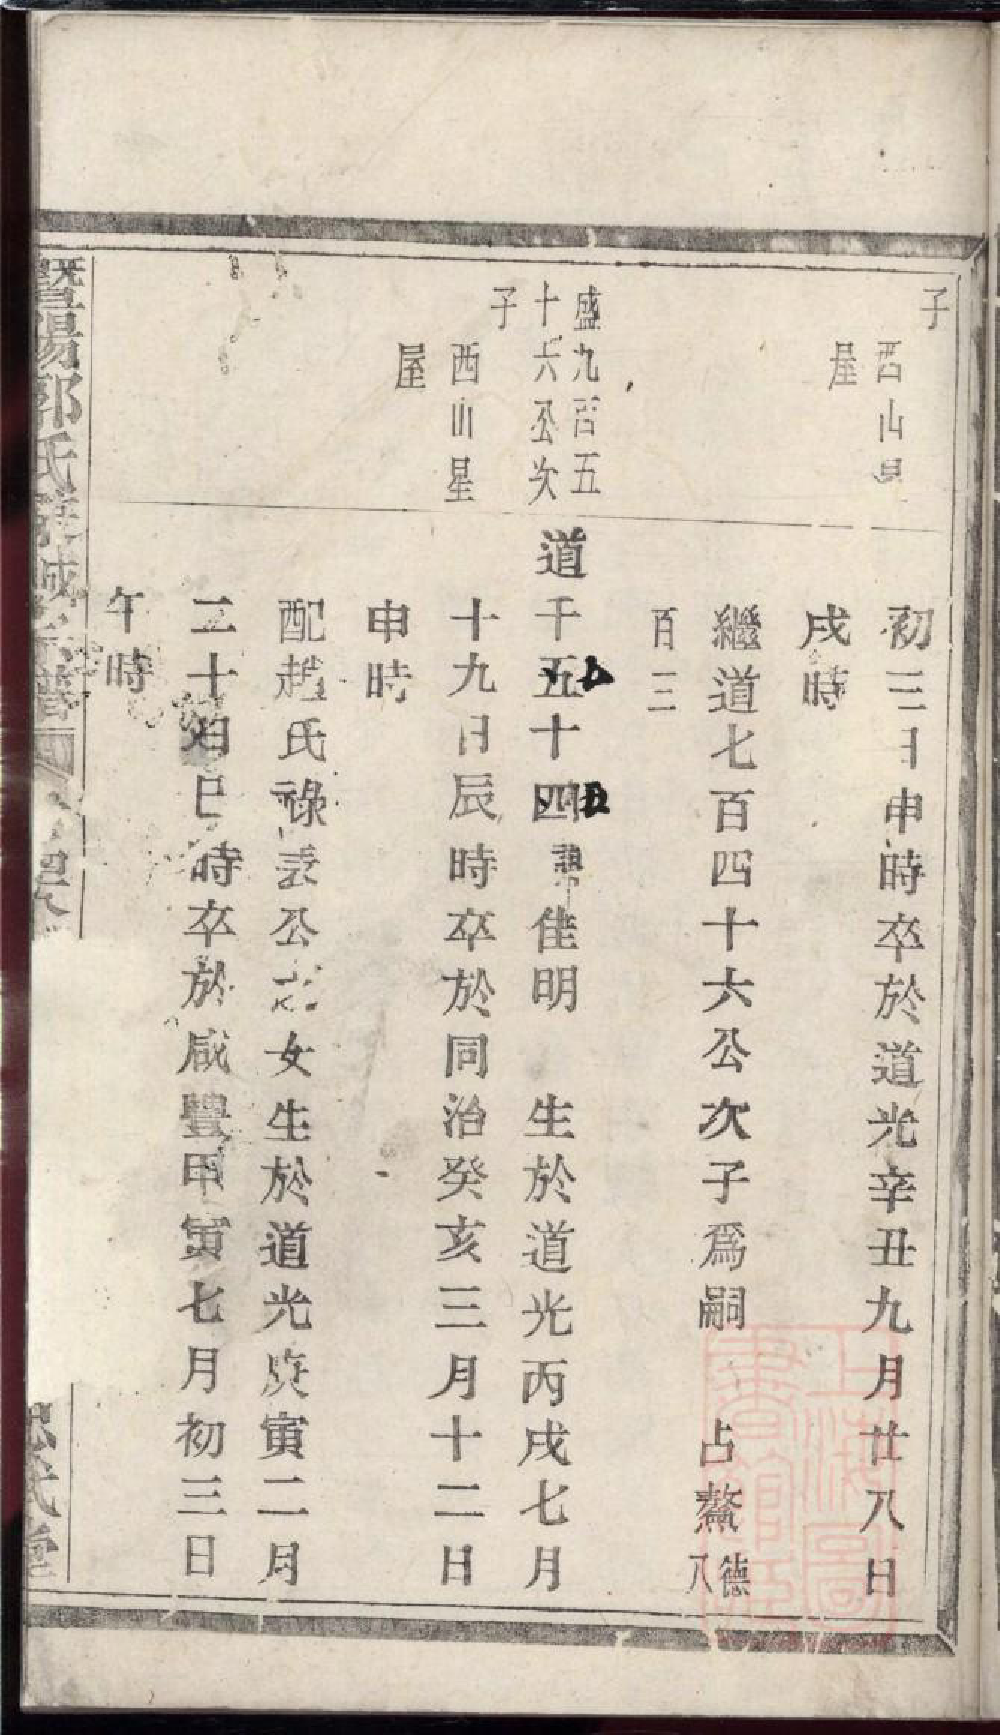 子
西山
屋
初三日申時卒於道光辛丑九月廿八日
戌時
繼道七百四十六公次子爲嗣 占鰲 德八
百三
盛九百五
十六公次
子
西山星
屋
道千五十四 諱佳明 生於道光丙戌七月
十九日辰時卒於同治癸亥三月十二日
申時
配趙氏祿表公女生於道光庚寅二月
二十日巳時卒於咸豐甲寅七月初三日
午時
暨陽郭氏宗譜
上海圖書館藏